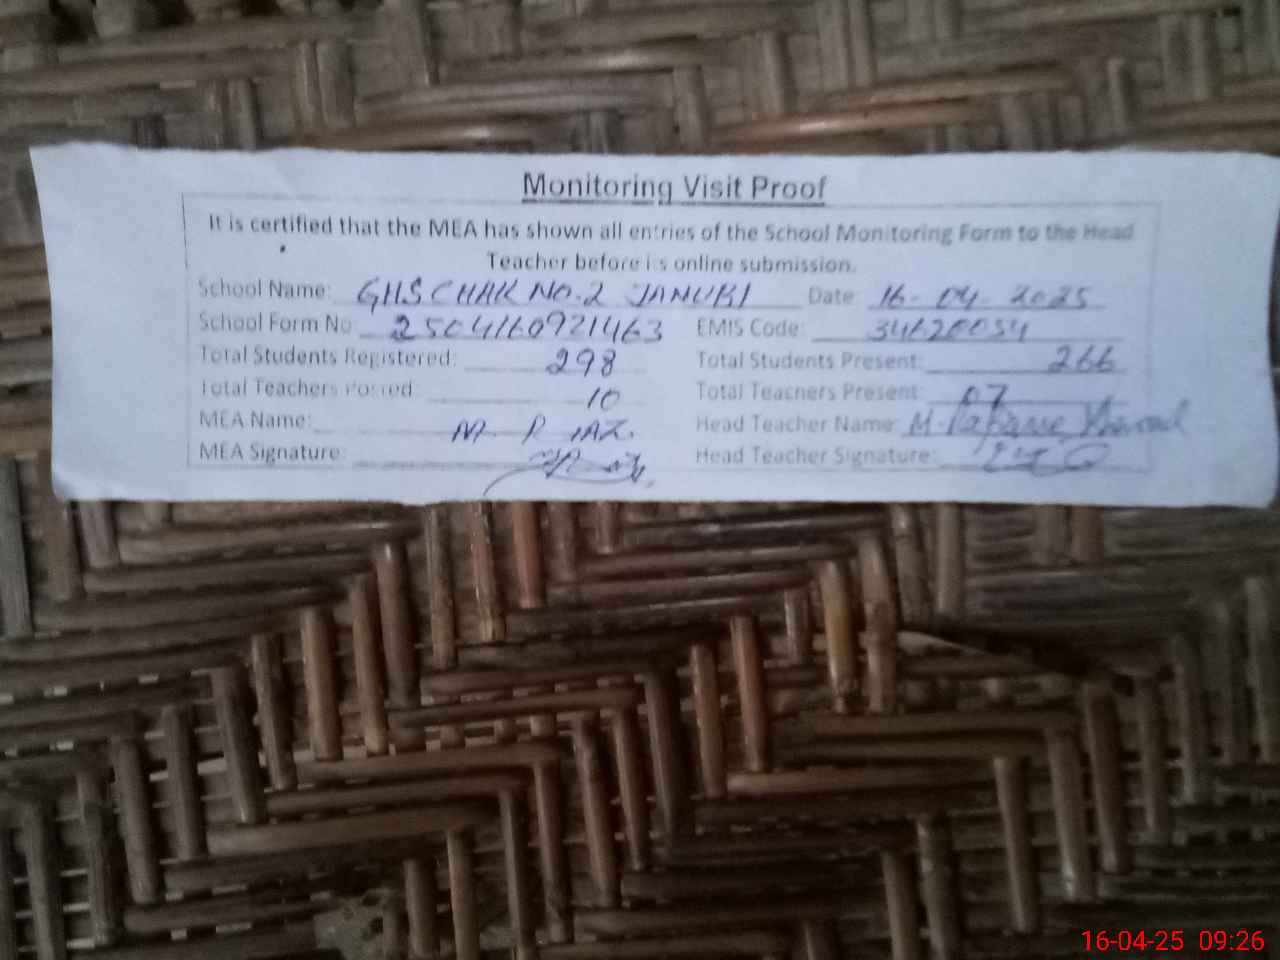 Monitoring Visit Proof
It is certified that the MEA has shown all entries of the School Monitoring Form to the Head
Teacher before its online submission.
School Name: GHS CHAK NO.2 JANUBI Date: 16-04-2025
School Form No: 2504160921463 EMIS Code: 34620054
Total Students Registered: 298 Total Students Present: 266
Total Teachers Posted: 10 Total Teachers Present: 07
MEA Name: M. RIAZ. Head Teacher Name: M.
MEA Signature: Head Teacher Signature:
16-04-25 09:26